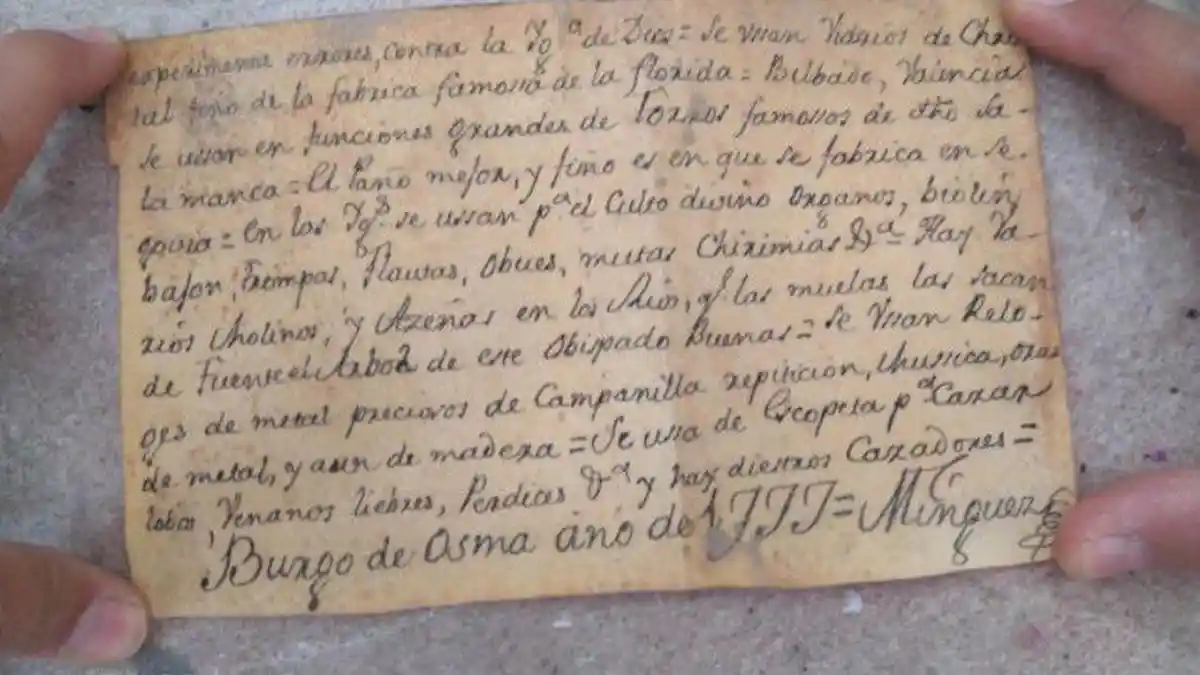 experimenta errores, contra la Yg.ª de Dios = Se usan Vidrios de Chris
tal fino de la fabrica famossa de la florida = Bilbade, Valencia
se ussan en funciones grandes de Torros famossos de dho Sa-
lamanca = El Paño mejor, y fino es en que se fabrica en Se-
govia = En los Yg.s se ussan p.ª el Culto divino organos, biolin,
bajon, Trompas, Flautas, obues, mutas Chirimias &ª = Hay Va-
rios Molinos, y Azeñas en los Rios, y las muelas las sacan
de Fuentelarbol de este Obispado Buenas = Se Vssan Relo-
ges de metal preciosos de Campanilla repiticion, Mussica, oras
de metal, y aun de madera = Se ussa de Escopeta p.ª Cazar
lobos, Venanos liebres, Perdices &ª y hay diestros Cazadores =
Burgo de Osma año de 1777 = Minguez